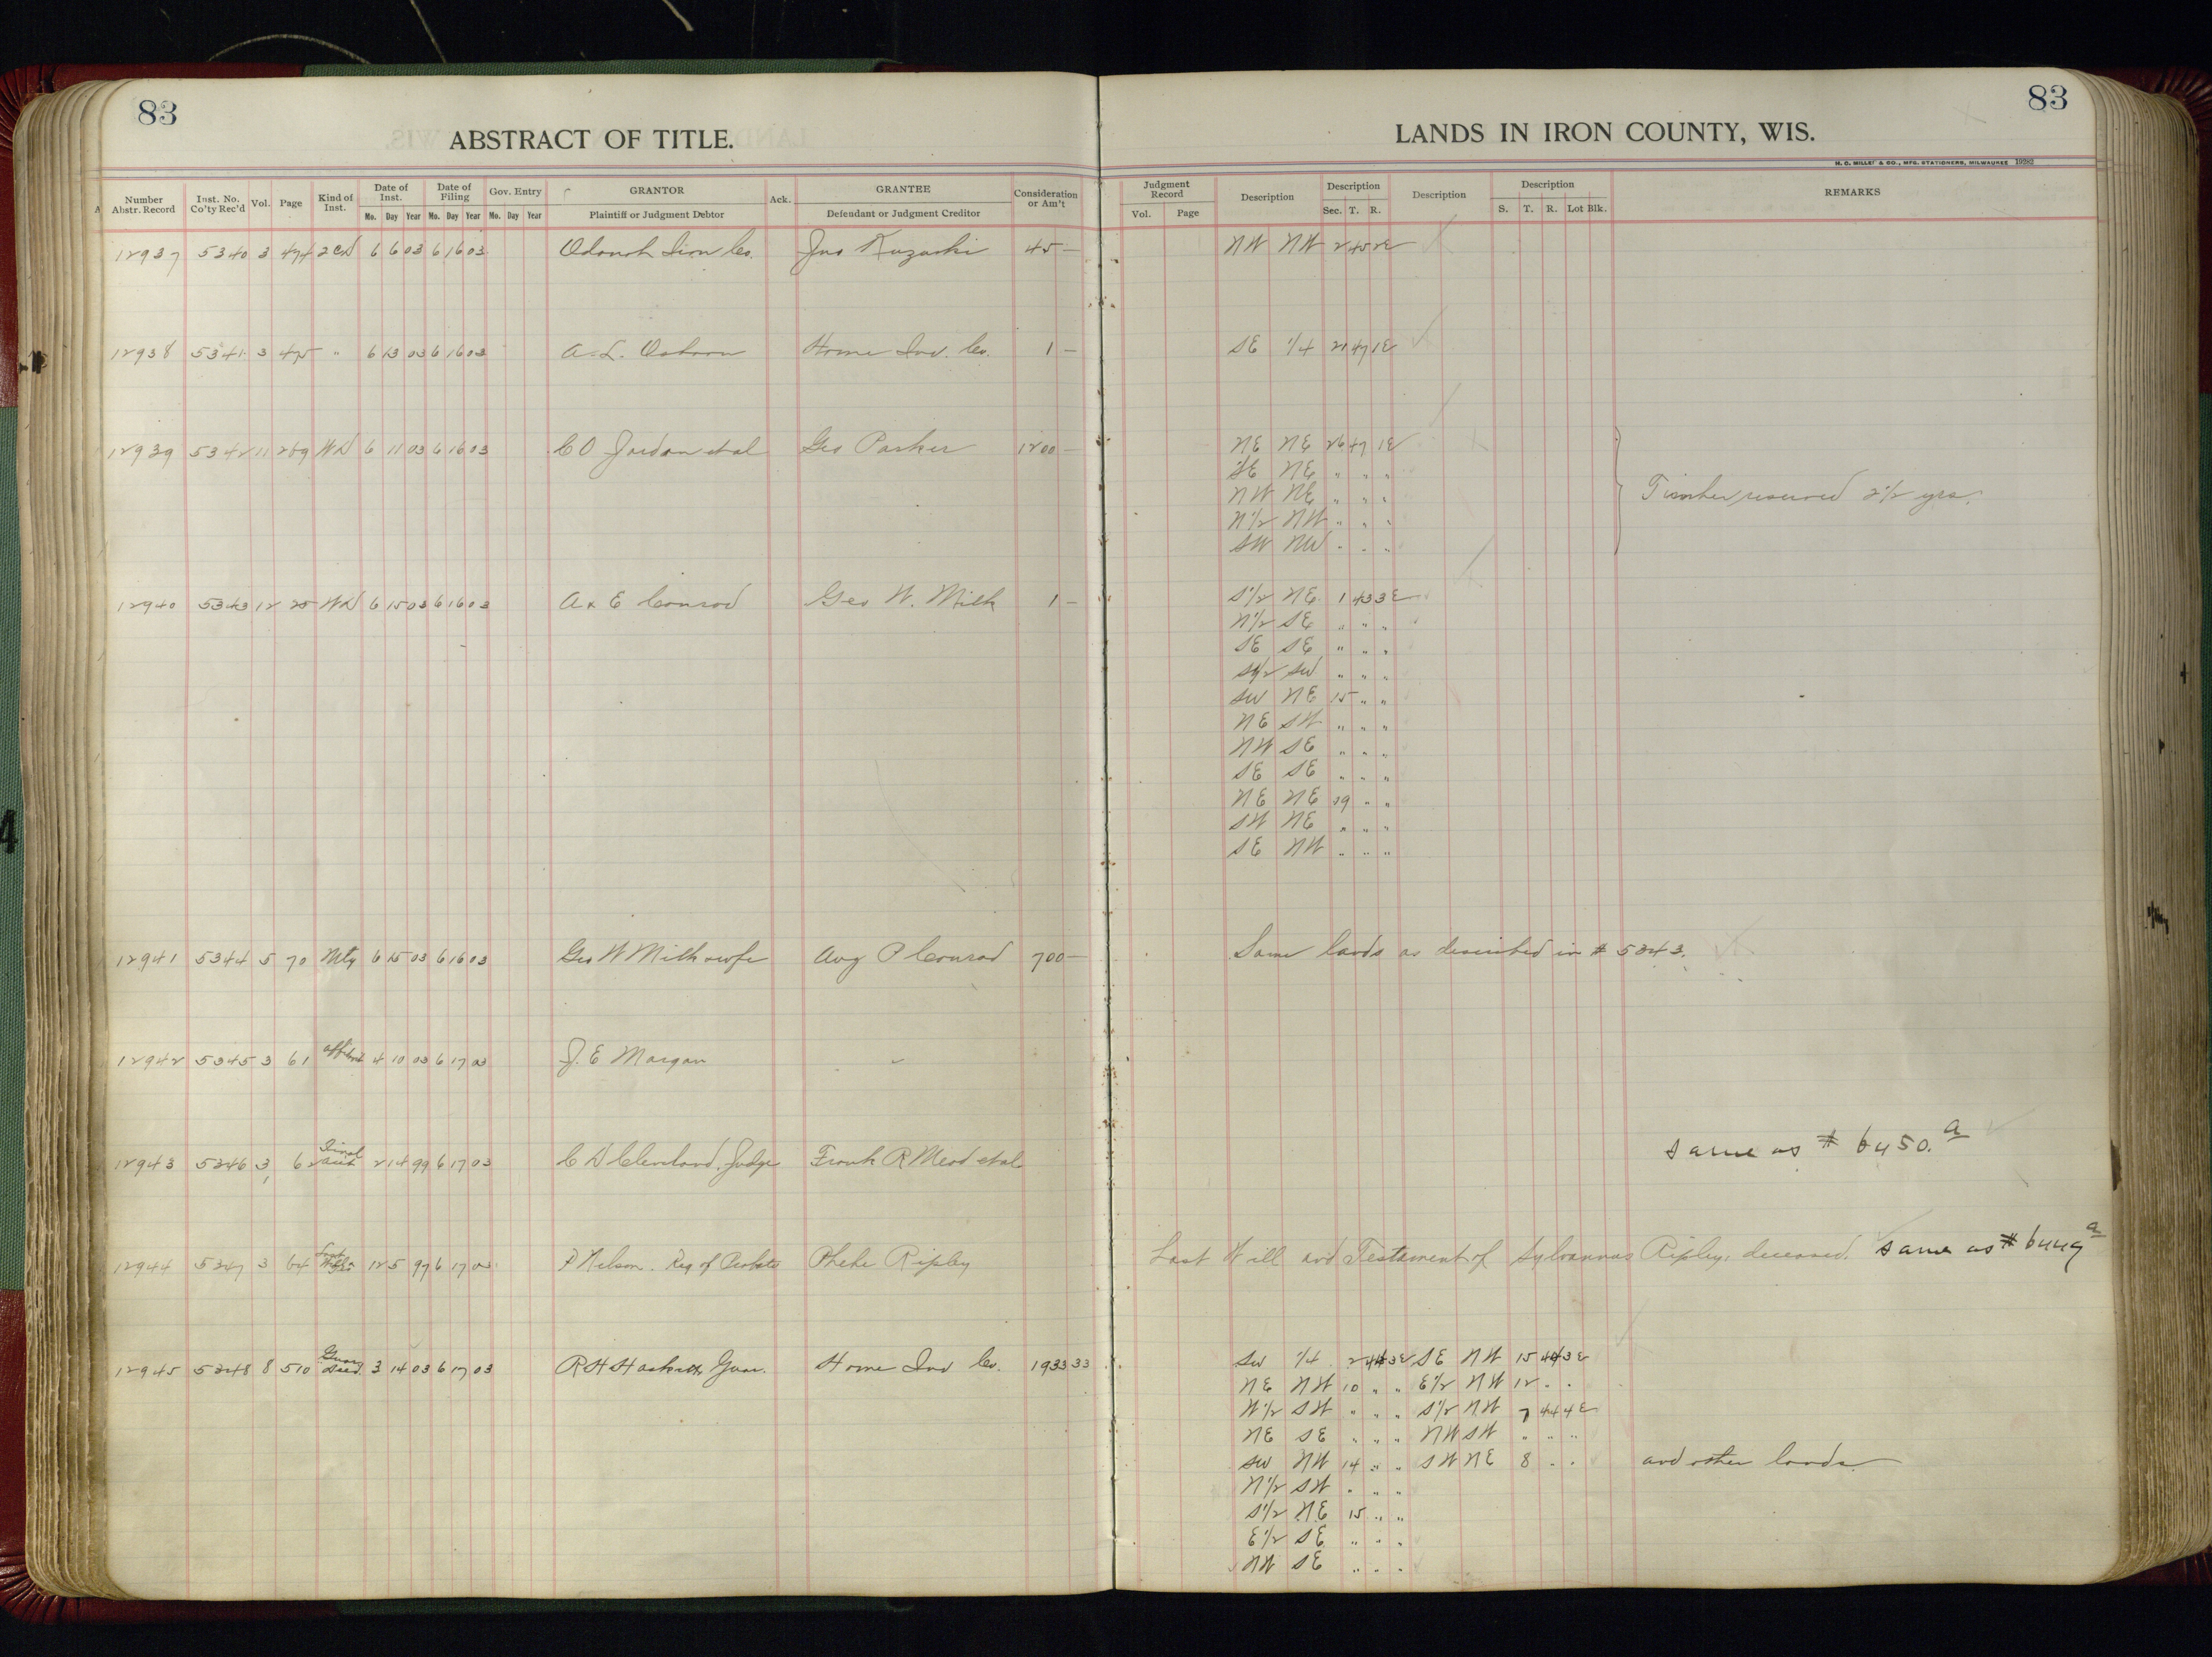 83
ABSTRACT OF TITLE.
83
LANDS IN IRON COUNTY, WIS.
H. C. MILLER & CO., MFG. STATIONERS, MILWAUKEE 19282
Number Abstr. Record | Inst. No. Co'ty Rec'd | Vol. | Page | Kind of Inst. | Date of Inst. Mo. Day Year | Date of Filing Mo. Day Year | Gov. Entry Mo. Day Year | GRANTOR Plaintiff or Judgment Debtor | Ack. | GRANTEE Defendant or Judgment Creditor | Consideration or Am't | Judgment Record Vol. Page | Description | Description Sec. T. R. | Description | Description S. T. R. Lot Blk. | REMARKS
12937 5340 3 474 2CD 6 6 03 6 16 03 Odanah Iron Co. Jno 45 — NW NW 2 45 2E
12938 5341 3 475 " 6 13 03 6 16 03 A. L. Osborn Home Inv. Co. 1 — SE 1/4 21 47 1E
12939 5342 11 289 WD 6 11 03 6 16 03 C O Jordan et al Geo Parker 1200 — NE NE 26 47 1E
SE NE " " "
NW NE " " " Timber reserved 2 1/2 yrs.
N1/2 NW " " "
SW NW " " "
12940 5343 12 25 WD 6 15 03 6 16 03 A & E Conrad Geo W. Milk 1 — S1/2 NE 1 43 3E
N1/2 SE " " "
SE SE " " "
SW " " "
SW NE 15 " "
NE SW " " "
NW SE " " "
SE SE " " "
NE NE 29 " "
SW NE " " "
SE NW " " "
12941 5344 5 70 Mtg 6 15 03 6 16 03 Geo W Milk & wfe Aug P Conrad 700 — Same lands as described in # 5343.
12942 5345 3 61 4 10 03 6 17 03 J. E Morgan
12943 5346 3 62 Final 2 14 99 6 17 03 C D Cleveland, Judge Frank R Mead et al same as # 6450.a
12944 5347 3 64 12 5 97 6 17 03 P Nelson. Reg of Probate Phebe Ripley Last Will and Testament of Sylvannus Ripley, deceased. same as # 6449a
12945 5348 8 510 Guar Deed. 3 14 03 6 17 03 R H Guar. Home Inv Co. 1933 33 SW 1/4 2 44 3E SE NW 15 44 3E
NE NW 10 " " E1/2 NW 12 " "
W1/2 SW " " " S1/2 NW 7 44 4E
NE SE " " " NW SW " " "
SW NW 14 " " SW NE 8 " " and other lands
N1/2 SW " " "
S1/2 NE 15 " "
E1/2 SE " " "
NW SE " " "